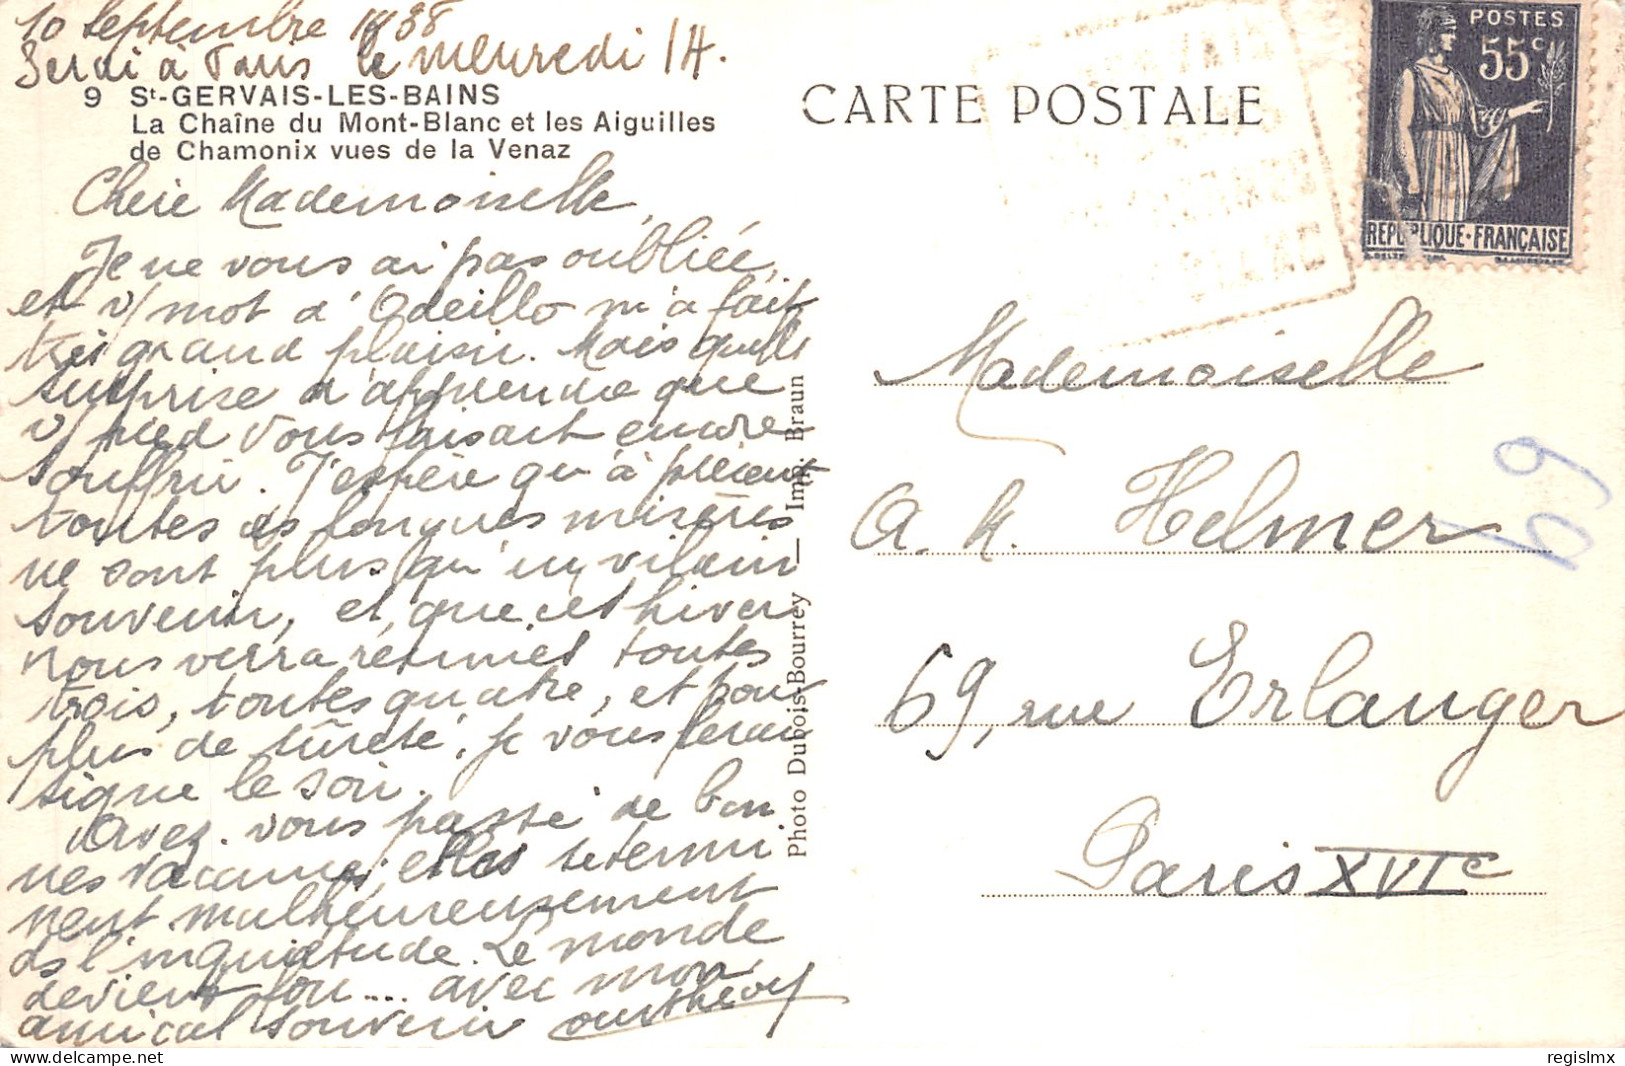 10 Septembre 1938
Serai à Paris le mercredi 14.
9 St-GERVAIS-LES-BAINS
La Chaîne du Mont-Blanc et les Aiguilles
de Chamonix vues de la Venaz
CARTE POSTALE
POSTES
55c
REPUBLIQUE-FRANÇAISE
Chère Mademoiselle,
Je ne vous ai pas oubliée,
et v/ mot d'Odeillo m'a fait
très grand plaisir. Mais quelle
surprise d'apprendre que
v/ pied vous faisait encore
souffrir. J'espère qu'à présent
toutes ces longues misères
ne sont plus qu'un vilain
souvenir, et que cet hiver
nous verra réunies toutes
trois, toutes quatre, et pour
plus de sûreté, je vous ferai
signe le soir.
Avez-vous passé de bon
nes vacances, elles se termi
nent malheureusement
ds l'inquiétude. Le monde
devient fou.... avec mon
amical souvenir
Photo Dubois-Bourrey — Imp. Braun
Mademoiselle
A. K. Helmer
69, rue Erlanger
Paris XVIe
69
regislmx